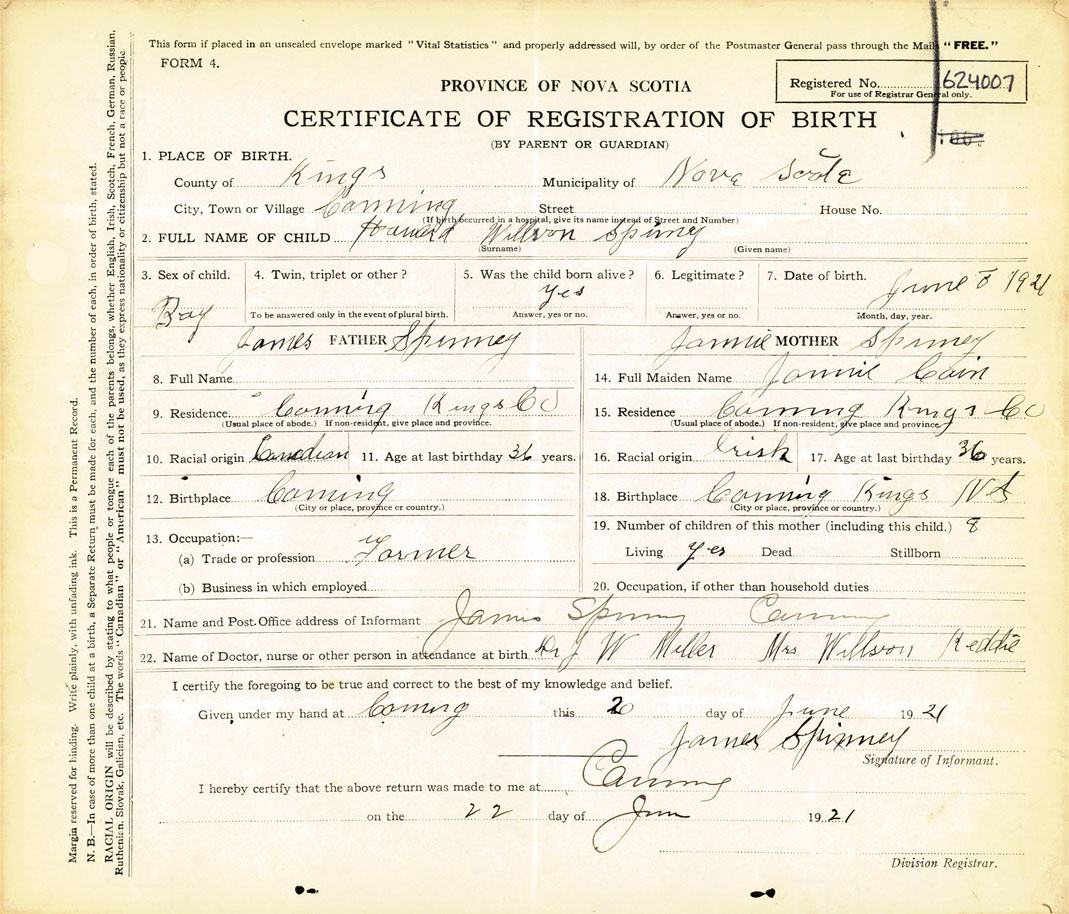 This form if placed in an unsealed envelope marked "Vital Statistics" and properly addressed will, by order of the Postmaster General pass through the Mail "FREE."
FORM 4.
PROVINCE OF NOVA SCOTIA
Registered No. 624007
For use of Registrar General only.
CERTIFICATE OF REGISTRATION OF BIRTH
(BY PARENT OR GUARDIAN)
1. PLACE OF BIRTH.
County of Kings Municipality of Nova Scotia
City, Town or Village Canning Street House No.
(If birth occurred in a hospital, give its name instead of Street and Number)
2. FULL NAME OF CHILD Howard Willson Spinney
(Surname) (Given name)
3. Sex of child. 4. Twin, triplet or other? 5. Was the child born alive? 6. Legitimate? 7. Date of birth. June 8 1921
Boy yes
To be answered only in the event of plural birth. Answer, yes or no. Answer, yes or no. Month, day, year.
James FATHER Spinney Jannie MOTHER Spinney
8. Full Name 14. Full Maiden Name Jannie Cain
9. Residence Canning Kings Co 15. Residence Canning Kings Co
(Usual place of abode.) If non-resident, give place and province. (Usual place of abode.) If non-resident, give place and province.
10. Racial origin Canadian 11. Age at last birthday 36 years. 16. Racial origin Irish 17. Age at last birthday 36 years.
12. Birthplace Canning 18. Birthplace Canning Kings NS
(City or place, province or country.) (City or place, province or country.)
13. Occupation:— 19. Number of children of this mother (including this child.) 8
(a) Trade or profession Farmer Living yes Dead Stillborn
(b) Business in which employed 20. Occupation, if other than household duties
21. Name and Post Office address of Informant James Spinney Canning
22. Name of Doctor, nurse or other person in attendance at birth Dr J W Miller Mrs Willson Keddie
I certify the foregoing to be true and correct to the best of my knowledge and belief.
Given under my hand at Canning this 20 day of June 1921
James Spinney
Signature of Informant.
I hereby certify that the above return was made to me at Canning
on the 22 day of June 1921
Division Registrar.
Margin reserved for binding. Write plainly, with unfading ink. This is a Permanent Record.
N. B.—In case of more than one child at a birth, a Separate Return must be made for each, and the number of each, in order of birth, stated.
RACIAL ORIGIN will be described by stating to what people or tongue each of the parents belongs, whether English, Irish, Scotch, French, German, Russian,
Ruthenian, Slovak, Galician, etc. The words "Canadian" or "American" must not be used, as they express nationality or citizenship but not a race or people.